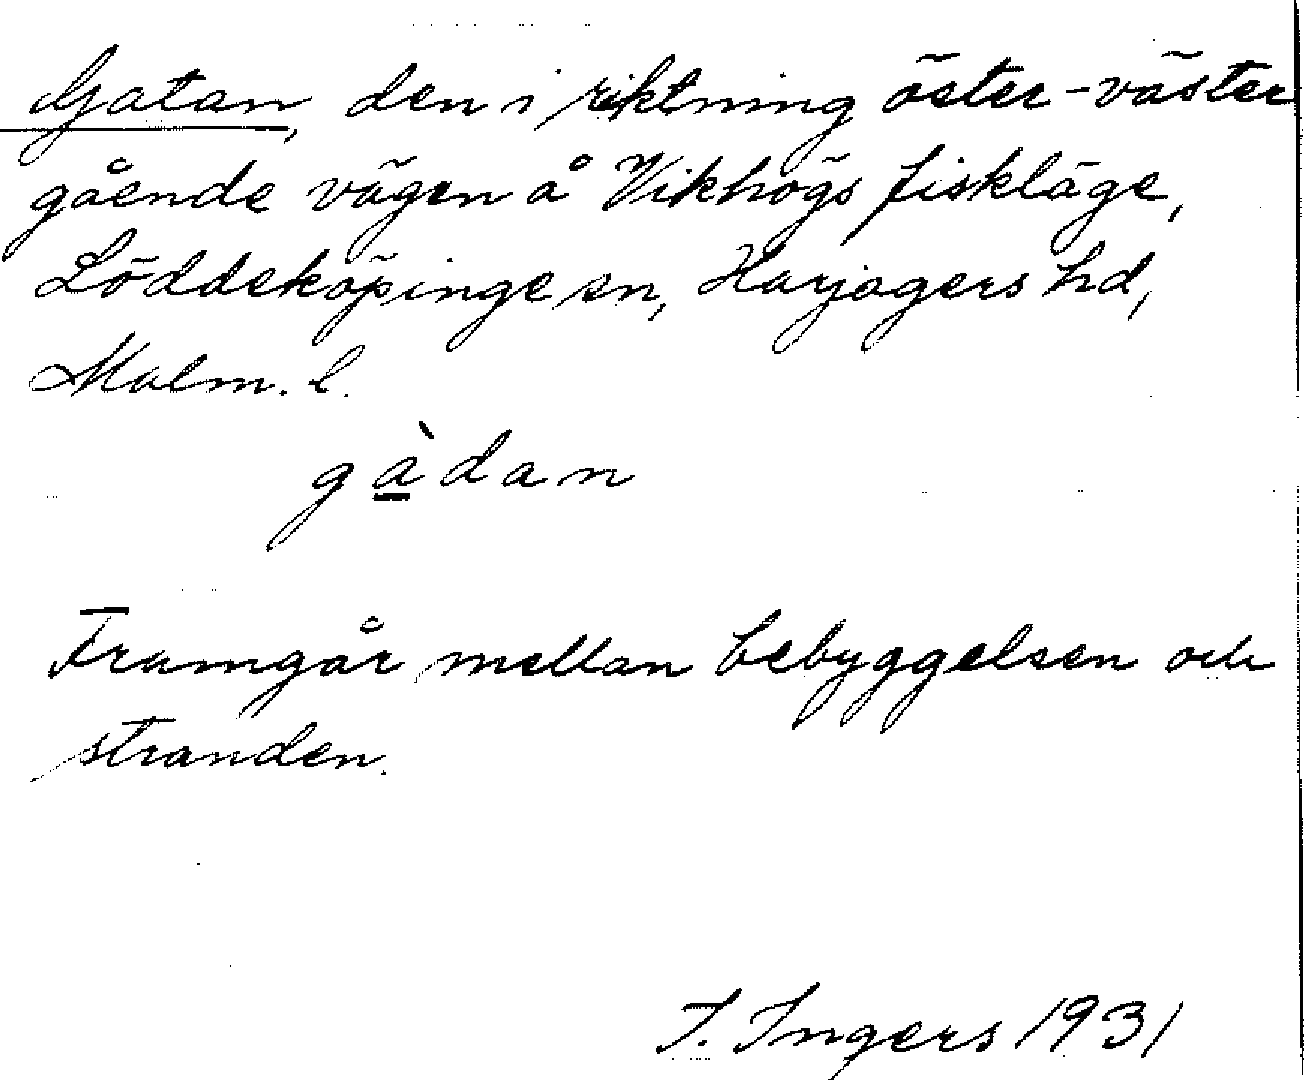 Gatan, den i riktning öster-väster
gående vägen å Vikhögs fiskläge,
Löddeköpinge sn, Harjagers hd,
Malm. l.
gàdan
Framgår mellan bebyggelsen och
stranden.
I. Ingers 1931